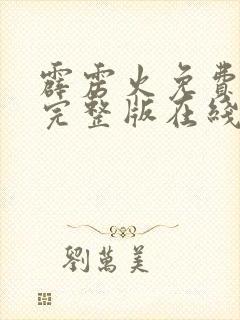 霹雳火免费
完整版在线
劉萬美